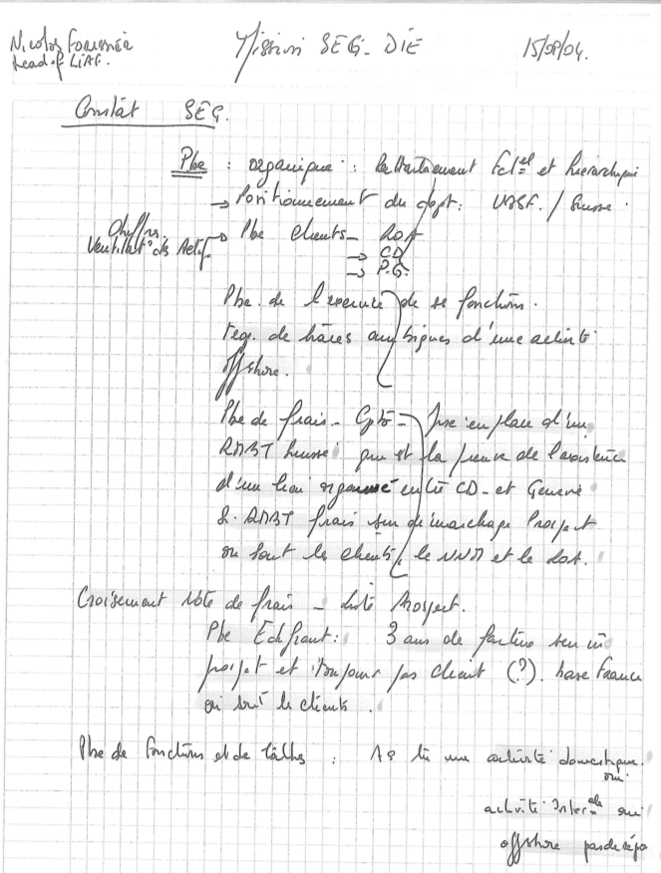 Nicolas Mission SEG - DIE 15/08/04.
Head of
Constat SEG.
Pbe : organique : Rattachement Fctel et hierarchique
→ Positionnement du dept : / Suisse.
Chiffres → Pbe clients -
Ventilat° des Actifs → CD
→ P.G.
Pbe. de l'exercice de se fonctions.
de traces ambigues d'une activité
offshore.
Pbe de frais - Cpta - pse en place d'un
RMBT Suisse qui est la preuve de l'existence
d'un lien organisé entre CD - et Geneve
2. RMBT frais sur démarchage Prospect
ou sont les clients, le NNM et le
Croisement Note de frais - liste Prospect.
Pbe Edifiant : 3 ans de facture sur un
prospet et toujours pas client (?). base France
où sont les clients.
Pbe de fonctions et de tâches : As tu une activité domestique.
oui
activité Interale oui
offshore pas de répo